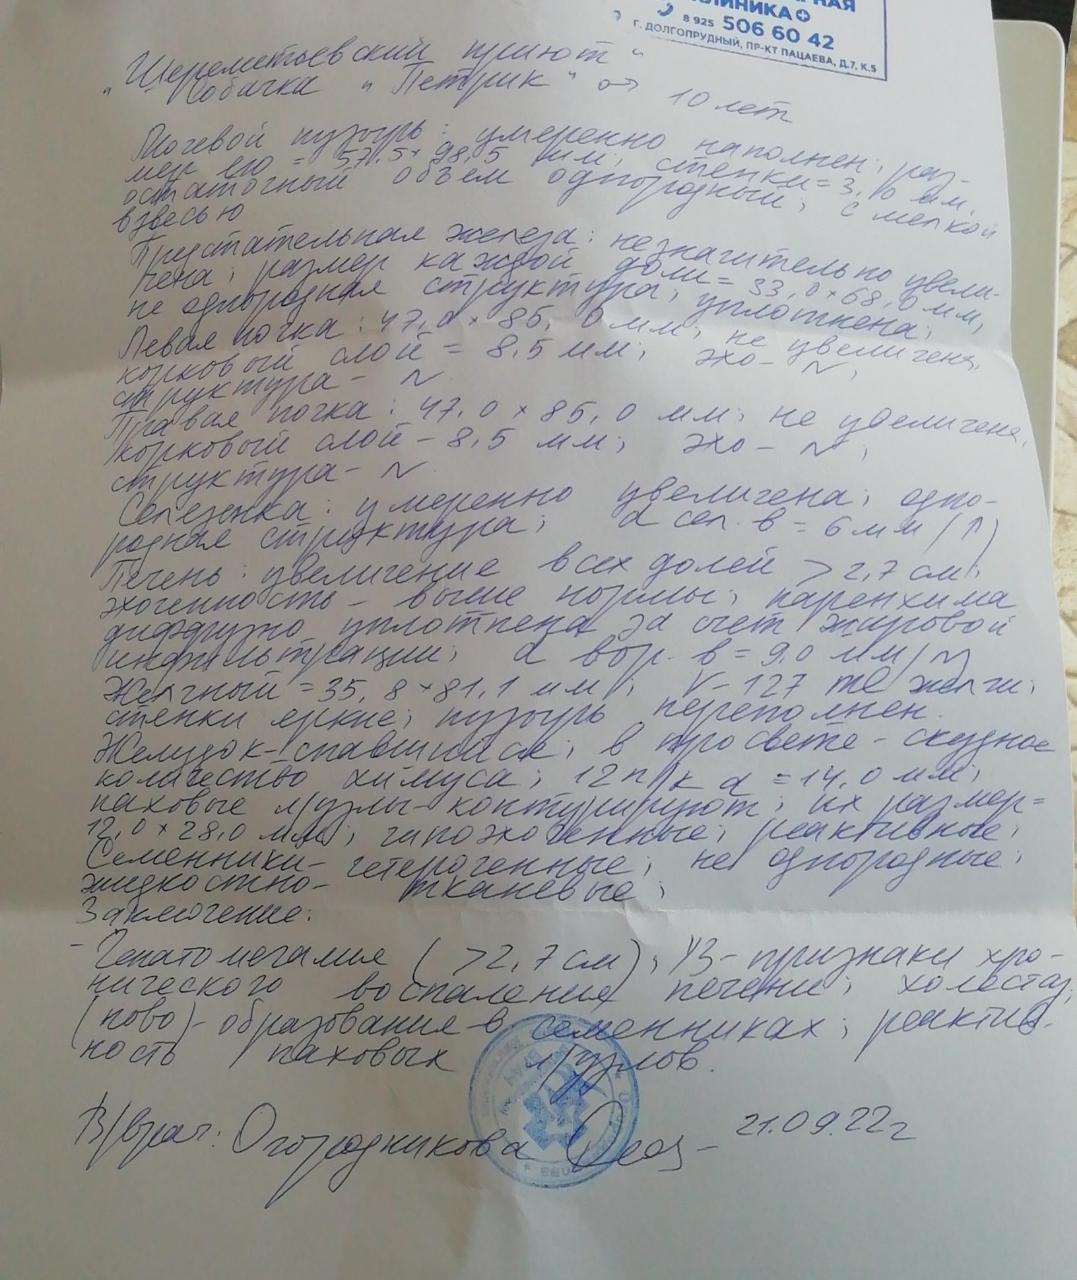 РНАЯ
КЛИНИКА
8 925 506 60 42
Г. ДОЛГОПРУДНЫЙ, ПР-КТ ПАЦАЕВА, Д.7, К.5
"Шереметьевский приют"
собачка "Петрик" 10 лет
Мочевой пузырь: умеренно наполнен; раз-
мер его = 57,5×98,5 мм; стенки = 3,0 мм,
остаточный объем однородный; с мелкой
взвесью
Предстательная железа: незначительно увели-
чена; размер каждой доли = 33,0×68,0 мм,
не однородная структура; уплотнена;
Левая почка: 47,0×85,0 мм; не увеличена,
корковый слой = 8,5 мм; эхо- N;
структура- N
Правая почка: 47,0×85,0 мм; не увеличена,
корковый слой - 8,5 мм; эхо- N;
структура- N
Селезенка: умеренно увеличена; одно-
родная структура; d сел. в = 6 мм (↑)
Печень: увеличение всех долей >2,7 см;
эхогенность- выше нормы; паренхима
диффузно уплотнена за счет жировой
инфильтрации; d вор. в = 9,0 мм (N)
Желчный = 35,8×81,1 мм; V-127 желчи;
стенки яркие; пузырь переполнен.
Желудок-спавшийся; в просвете - скудное
количество химуса; 12п/к d = 14,0 мм;
паховые л/узлы-контурируют; их размер=
12,0×28,0 мм; гипоэхогенные; реактивные;
Семенники-гетерогенные; не однородные;
жидкостно- тканевые;
Заключение:
- Гепатомегалия (>2,7 см); УЗ-признаки хро-
нического воспаления печени; холестаз;
(ново)-образование в семенниках; реактив-
ность паховых л/узлов.
В/врач: Огородникова 21.09.22г